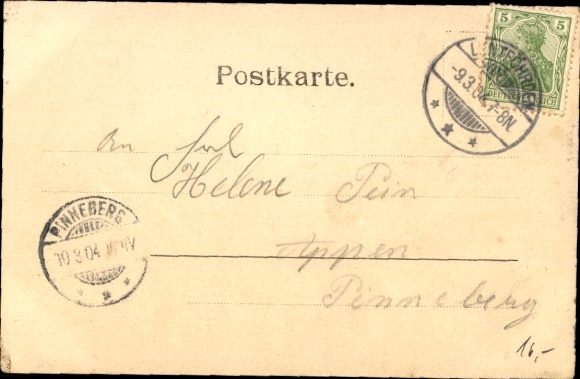 5 5
DEUTSCHES REICH
-9.3.04.7-8N.
Postkarte.
An Frl
Helene Pein
PINNEBERG
10.3.04
Appen
Pinneberg
16,-